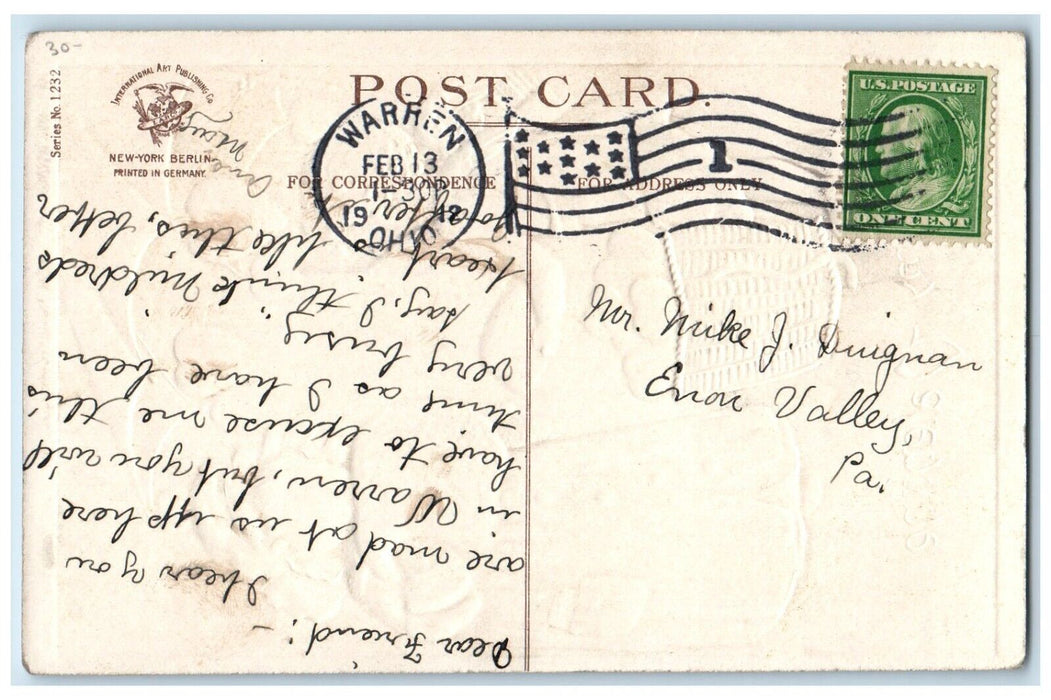 30-
Series No. 1232
INTERNATIONAL ART PUBLISHING Co
NEW-YORK BERLIN
PRINTED IN GERMANY.
POST CARD
FOR CORRESPONDENCE
FOR ADDRESS ONLY
WARREN
FEB 13
1-30P
19
OHIO
1
U.S. POSTAGE
ONE CENT
Mr. Mike J. Duignan
Enon Valley,
Pa.
Dear Friend: -
I hear you
are mad at us upp here
in Warren, but you will
have to excuse me this
time as I have been
very busy
say, I think Mildreds
heart like this, better